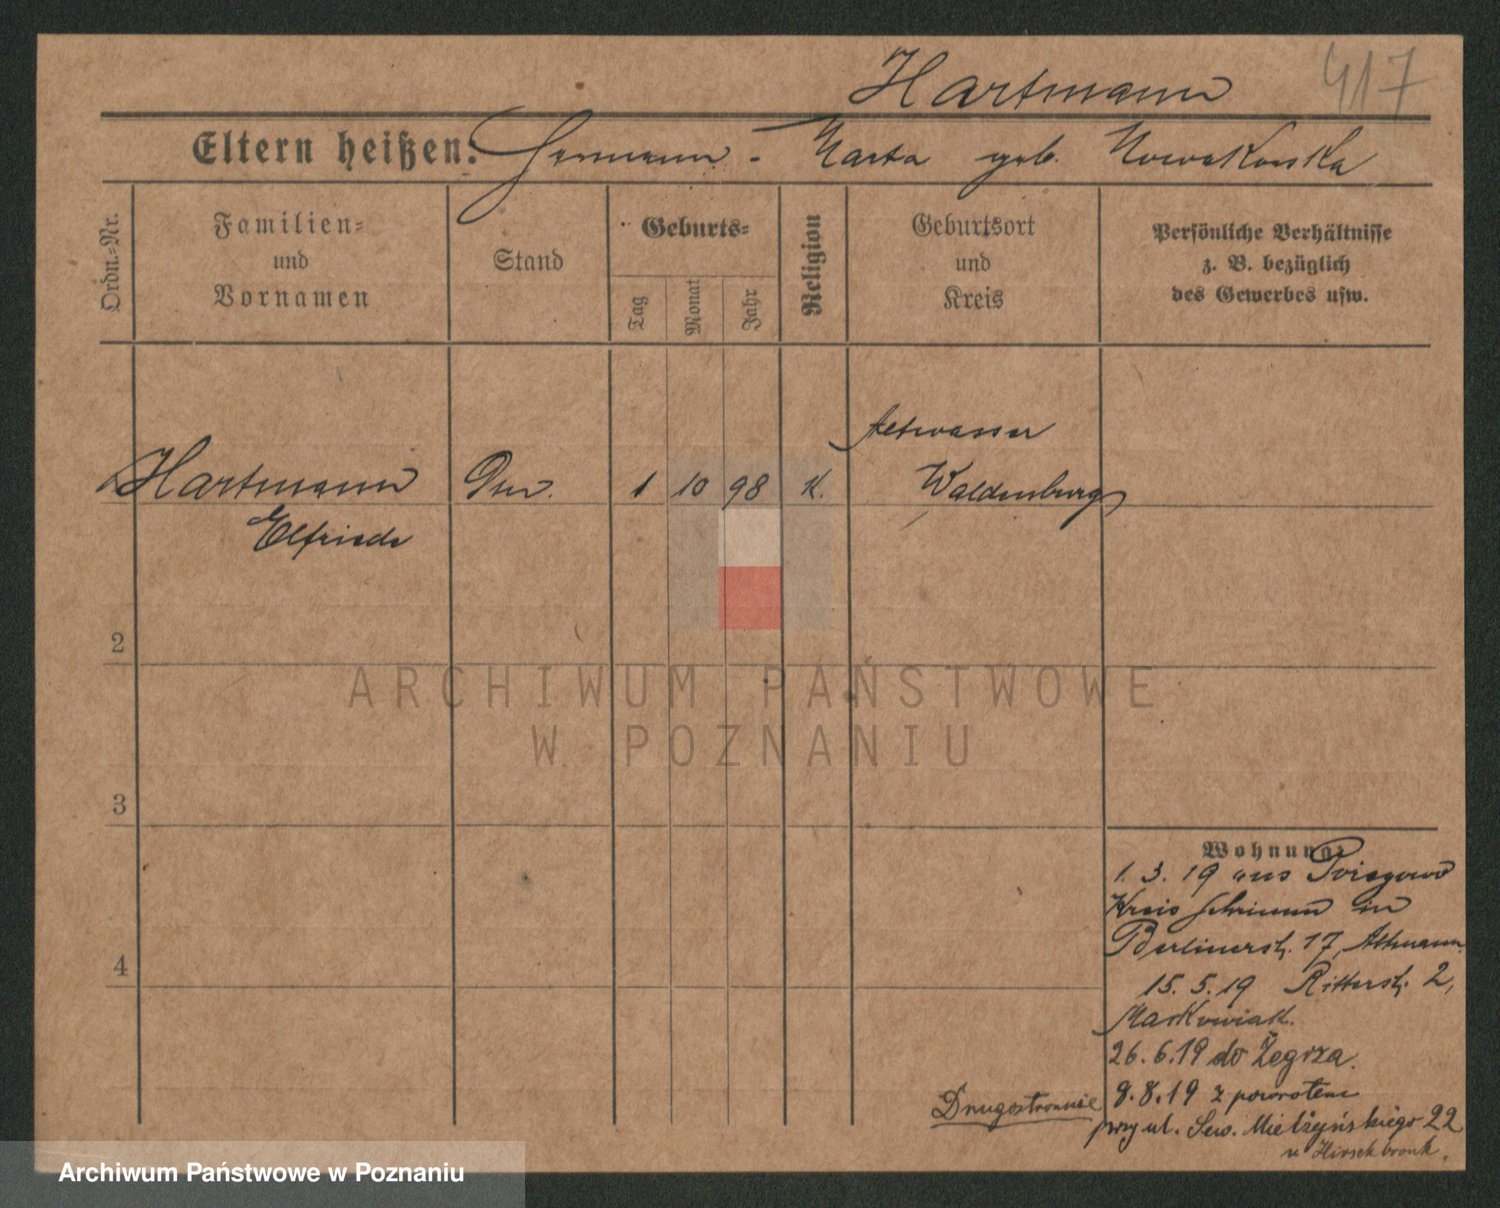 Hartmann 417
Eltern heißen: Hermann - Marta geb. Nowakowska
Ordn.-Nr.
Familien=
und
Vornamen
Stand
Geburts=
Tag
Monat
Jahr
Religion
Geburtsort
und
Kreis
Persönliche Verhältnisse
z. B. bezüglich
des Gewerbes usw.
Altwasser
Hartmann 1 10 98 K. Waldenburg
Elfriede
2
ARCHIWUM PAŃSTWOWE
W POZNANIU
3
Wohnung:
1. 3. 19 aus
Kreis Schrimm in
4
Berlinerstr. 17, Altmann.
15. 5. 19 Ritterstr. 2,
Markowiak.
26. 6. 19 do Żegrza.
Drugostronnie
8. 8. 19 z powrotem
przy ul. Sew. Mielżyńskiego 22
u
Archiwum Państwowe w Poznaniu